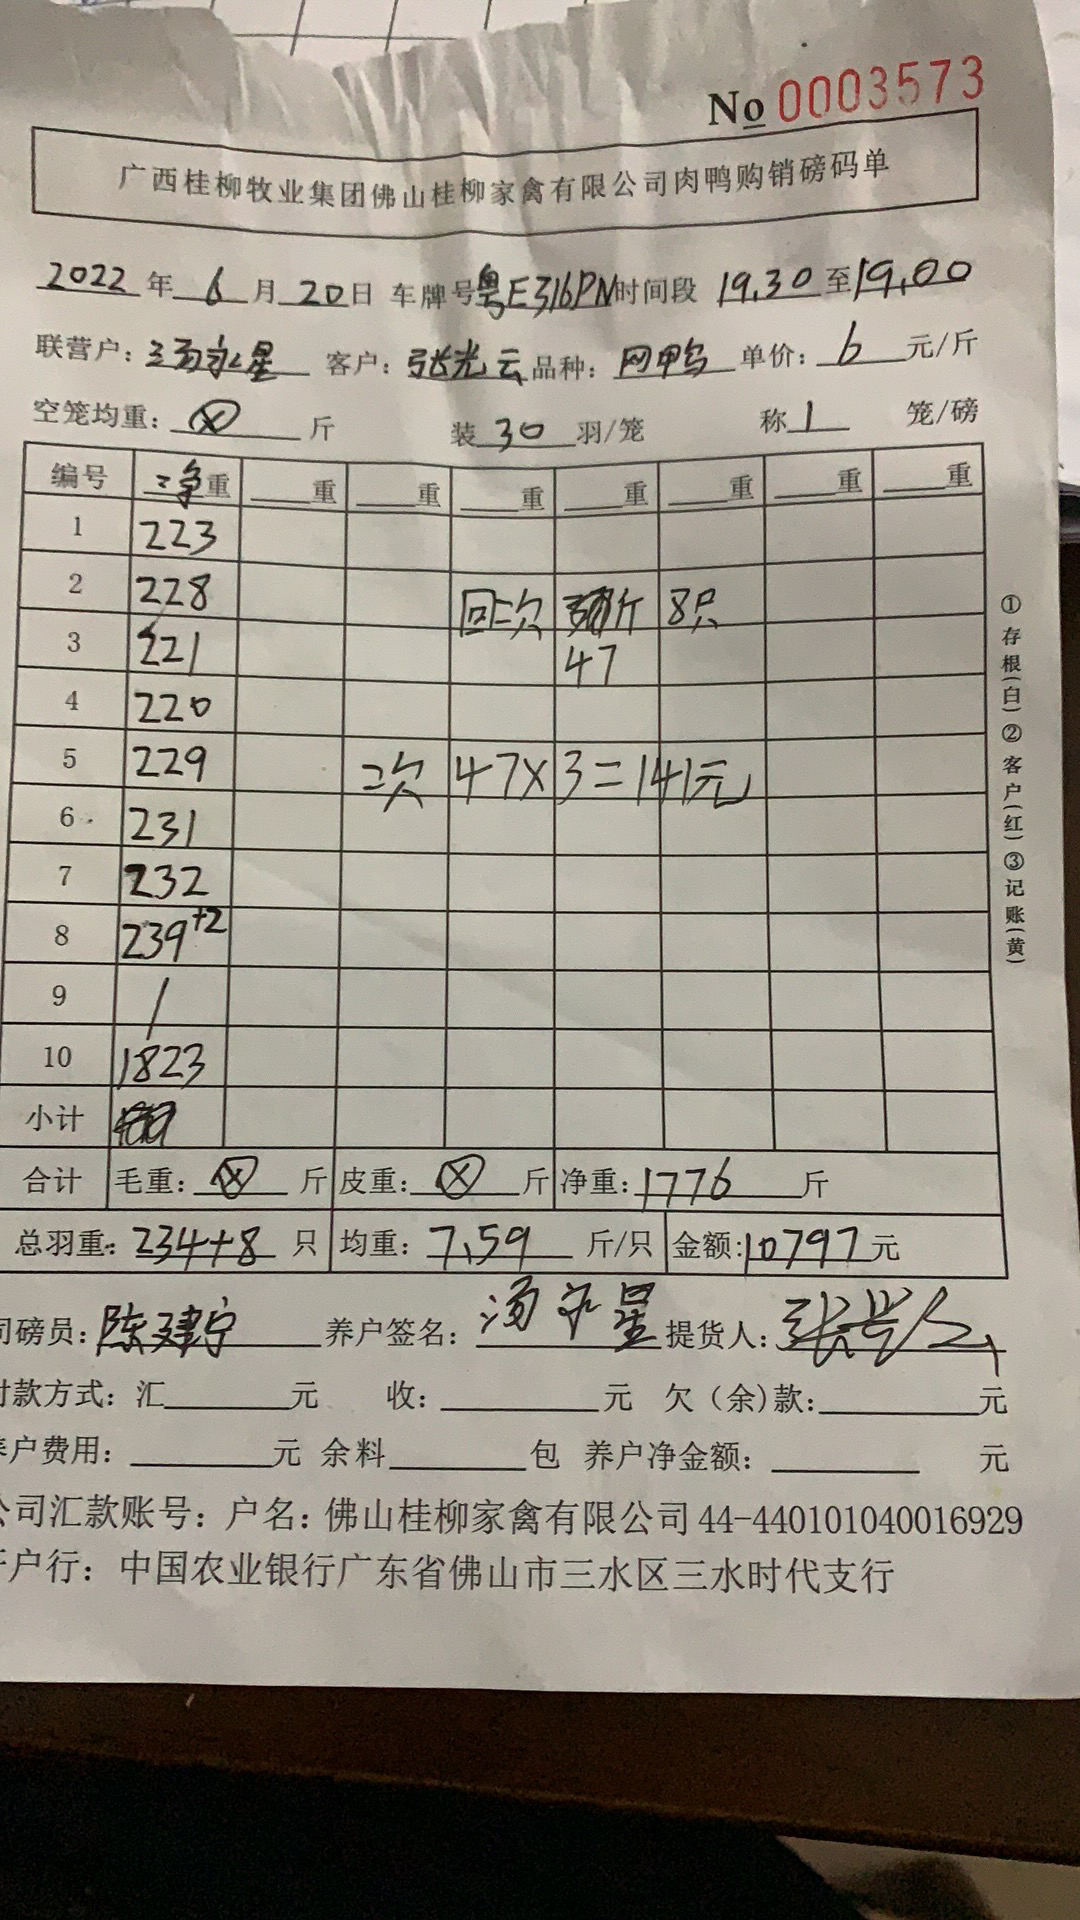 No 0003573
广西桂柳牧业集团佛山桂柳家禽有限公司肉鸭购销磅码单
2022 年 6 月 20 日 车牌号 粤E316PN 时间段 19.30 至 19.00
联营户: 汤永星 客户: 张光云 品种: 网鸭 单价: 6 元/斤
空笼均重: ⊗ 斤 装 30 羽/笼 称 1 笼/磅
编号 净重 重 重 重 重 重 重 重
1 223
2 228 回二次 斤 8只
3 221 47
4 220
5 229 二次 47×3=141元
6 231
7 232
8 239+2
9 /
10 1823
小计
合计 毛重: ⊗ 斤 皮重: ⊗ 斤 净重: 1776 斤
总羽重: 234+8 只 均重: 7.59 斤/只 金额: 10797 元
司磅员: 陈建宁 养户签名: 汤永星 提货人:
付款方式: 汇 元 收: 元 欠(余)款: 元
养户费用: 元 余料 包 养户净金额: 元
公司汇款账号: 户名: 佛山桂柳家禽有限公司 44-440101040016929
开户行: 中国农业银行广东省佛山市三水区三水时代支行
①存根(白)②客户(红)③记账(黄)